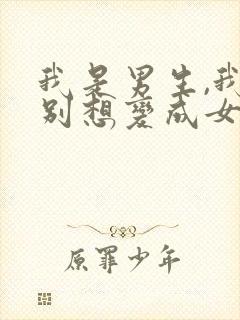 我是男生,我
别想变成女
原罪少年